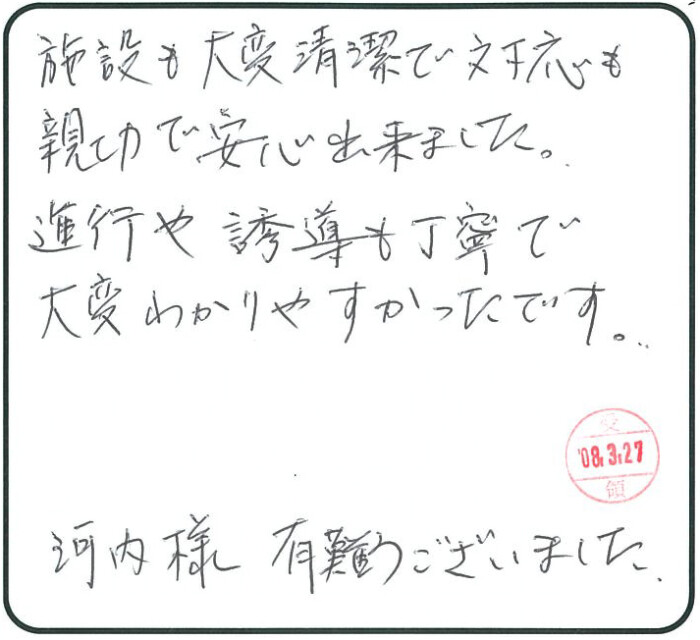 施設も大変清潔で対応も
親切で安心出来ました。
進行や誘導も丁寧で
大変わかりやすかったです。
受
'08.3.27
領
河内様 有難うございました.